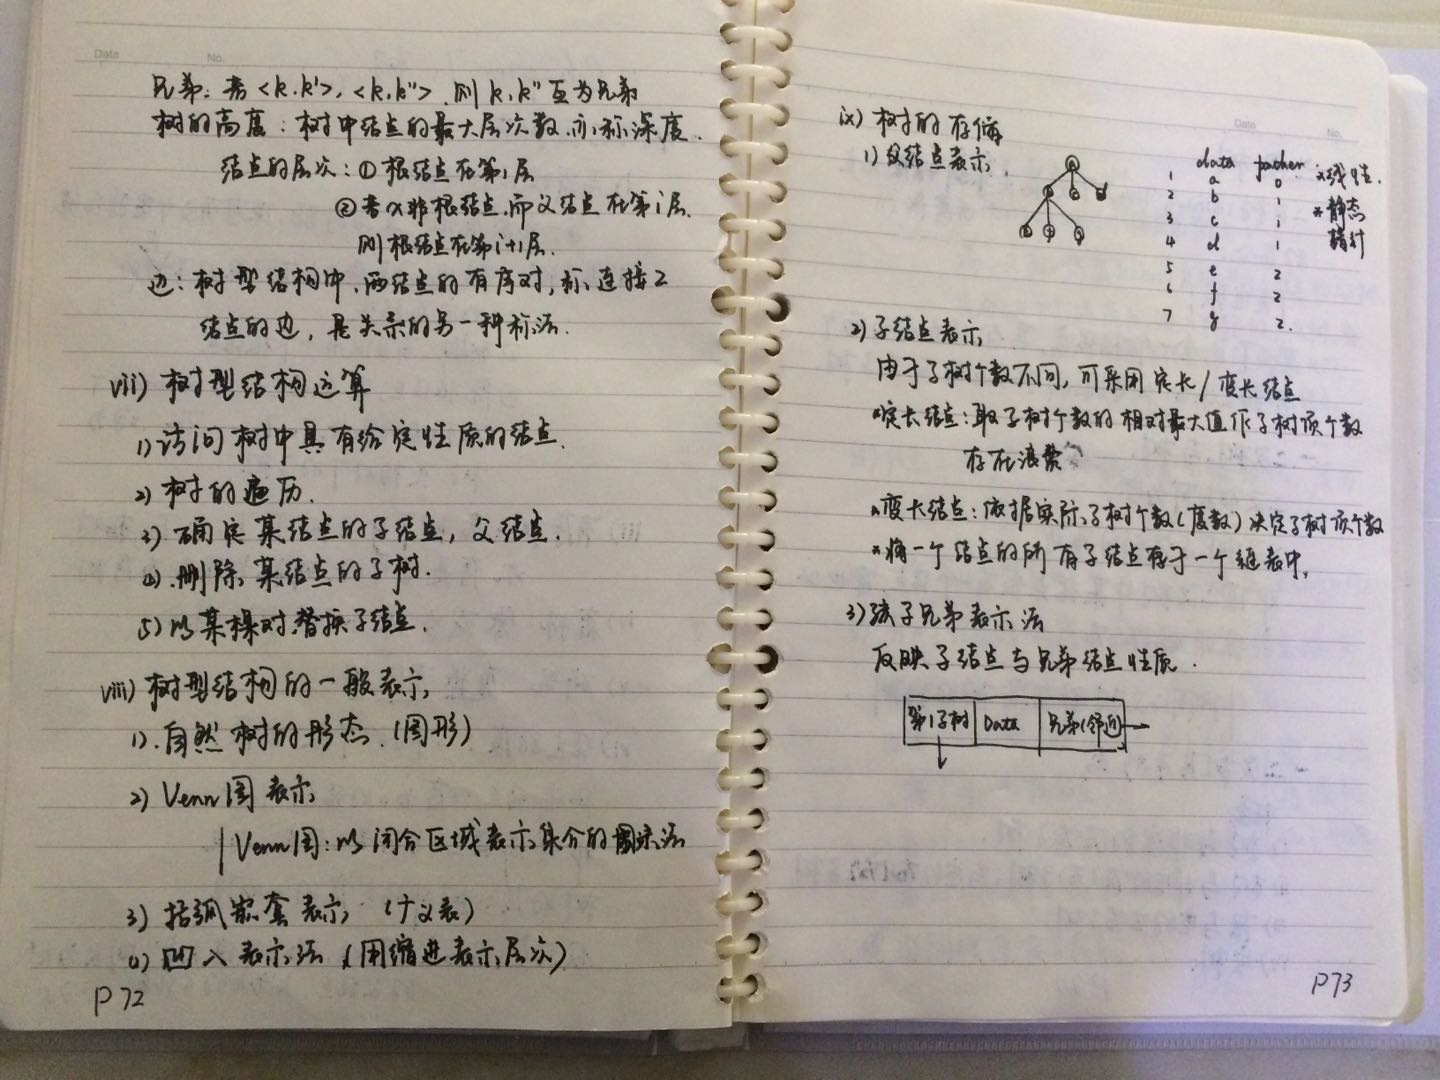 Date No.
兄弟：若<k,k'>,<k,k''>.则k,k''互为兄弟
树的高度：树中结点的最大层次数.亦称深度.
结点的层次：①根结点在第1层
②若x非根结点.而父结点在第i层.
则根结点在第i+1层.
边：树型结构中.两结点的有序对,称连接2
结点的边，是关系的另一种称法.
vii) 树型结构运算
1) 访问树中具有给定性质的结点.
2) 树的遍历.
3) 确定某结点的子结点，父结点.
4) 删除某结点的子树.
5) 以某棵树替换子结点.
viii) 树型结构的一般表示
1). 自然树的形态.（图形）
2) Venn图表示
Venn图：以闭合区域表示集合的图示法
3) 括弧嵌套表示（广义表）
4) 凹入表示法（用缩进表示层次）
P72
Date No.
ix) 树的存储
1) 父结点表示.
data father
1 a 0 *线性.
2 b 1 *静态
3 c 1 指针
4 d 1
5 e 2
6 f 2
7 g 2.
2) 子结点表示
由于子树个数不同，可采用定长/变长结点
*定长结点：取子树个数的相对最大值作子树项个数
存在浪费
*变长结点：依据实际子树个数(度数)决定子树项个数
*将一个结点的所有子结点存于一个链表中.
3) 孩子兄弟表示法
反映子结点与兄弟结点性质.
第1子树 Data 兄弟(邻近)
P73